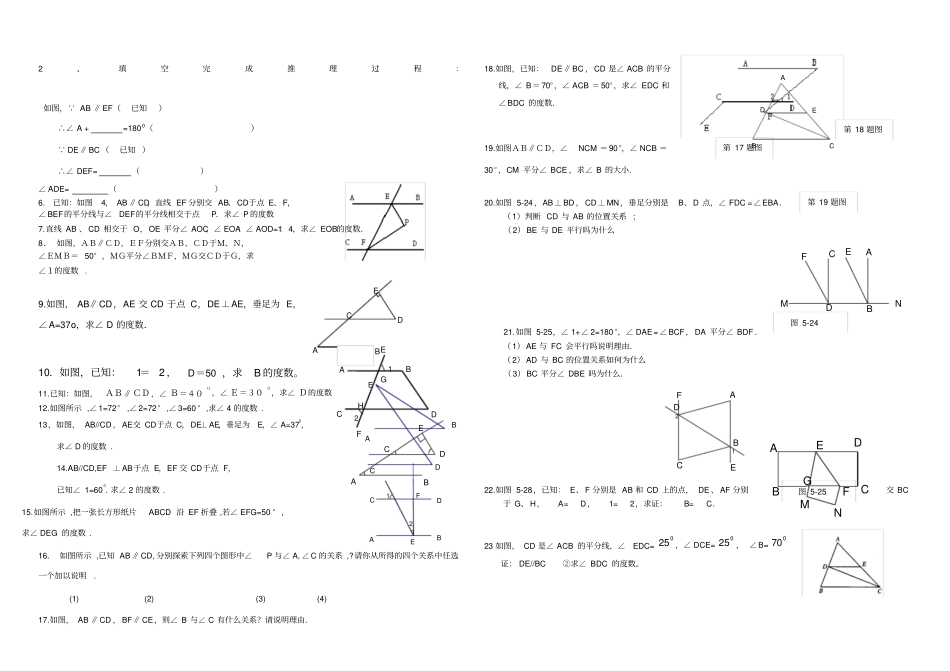 2 、 填 空 完 成 推 理 过 程 :
如图,∵ AB∥EF( 已知 )
∴∠A+______=180⁰( )
∵DE∥BC( 已知 )
∴∠DEF=______( )
∠ADE=______( )
6. 已知:如图 4, AB∥CD,直线 EF分别交 AB、CD于点 E、F,
∠BEF的平分线与∠ DEF的平分线相交于点 P.求∠P的度数
7.直线 AB、CD 相交于 O,OE 平分∠AOC,∠EOA:∠AOD=1:4,求∠EOB的度数.
8. 如图,AB∥CD,EF分别交AB、CD于M、N,
∠EMB= 50°,MG平分∠BMF,MG交CD于G,求
∠1的度数 .
9.如图, AB∥CD,AE 交 CD 于点 C,DE⊥AE,垂足为 E,
∠A=37o,求∠D 的度数.
10. 如图,已知: 1= 2, D=50 ,求 B的度数。
11.已知:如图, AB∥CD,∠B=40⁰,∠E=30⁰,求∠D的度数
12.如图所示 ,∠1=72°,∠2=72°,∠3=60°,求∠4 的度数 .
13,如图, AB//CD,AE交 CD于点 C,DE⊥AE,垂足为 E,∠A=37⁰,
求∠D 的度数 .
14.AB//CD,EF ⊥AB于点 E,EF 交 CD于点 F,
已知∠1=60⁰.求∠2 的度数 .
15.如图所示 ,把一张长方形纸片 ABCD 沿 EF 折叠 ,若∠EFG=50°,
求∠DEG 的度数 .
16. 如图所示 ,已知 AB∥CD,分别探索下列四个图形中∠ P 与∠A,∠C 的关系 ,?请你从所得的四个关系中任选
一个加以说明 .
(1) (2) (3) (4)
17.如图, AB∥CD,BF∥CE,则∠B 与∠C 有什么关系?请说明理由.
18.如图,已知: DE∥BC,CD 是∠ACB 的平分
线,∠B=70°,∠ACB=50°,求∠EDC 和
∠BDC 的度数.
第 18 题图
第 17 题图
19.如图AB∥CD,∠ NCM=90°,∠NCB=
30°,CM 平分∠BCE,求∠B 的大小.
20.如图 5-24,AB⊥BD,CD⊥MN,垂足分别是 B、D 点,∠FDC=∠EBA.
第 19题图
(1)判断 CD 与 AB 的位置关系 ;
(2)BE 与 DE 平行吗为什么
F C E A
M D B N
图 5-24
21.如图 5-25,∠1+∠2=180°,∠DAE=∠BCF,DA 平分∠BDF.
(1)AE 与 FC 会平行吗说明理由.
(2)AD 与 BC 的位置关系如何为什么.
(3)BC 平分∠DBE 吗为什么.
22.如图 5-28,已知: E、F 分别是 AB 和 CD 上的点, DE、AF 分别 交 BC
图 5-25
于 G、H, A= D, 1= 2,求证: B= C.
23 如图, CD 是∠ACB 的平分线,∠ EDC= 25⁰,∠DCE= 25⁰, ∠B= 70⁰
证: DE//BC ②求∠BDC 的度数。